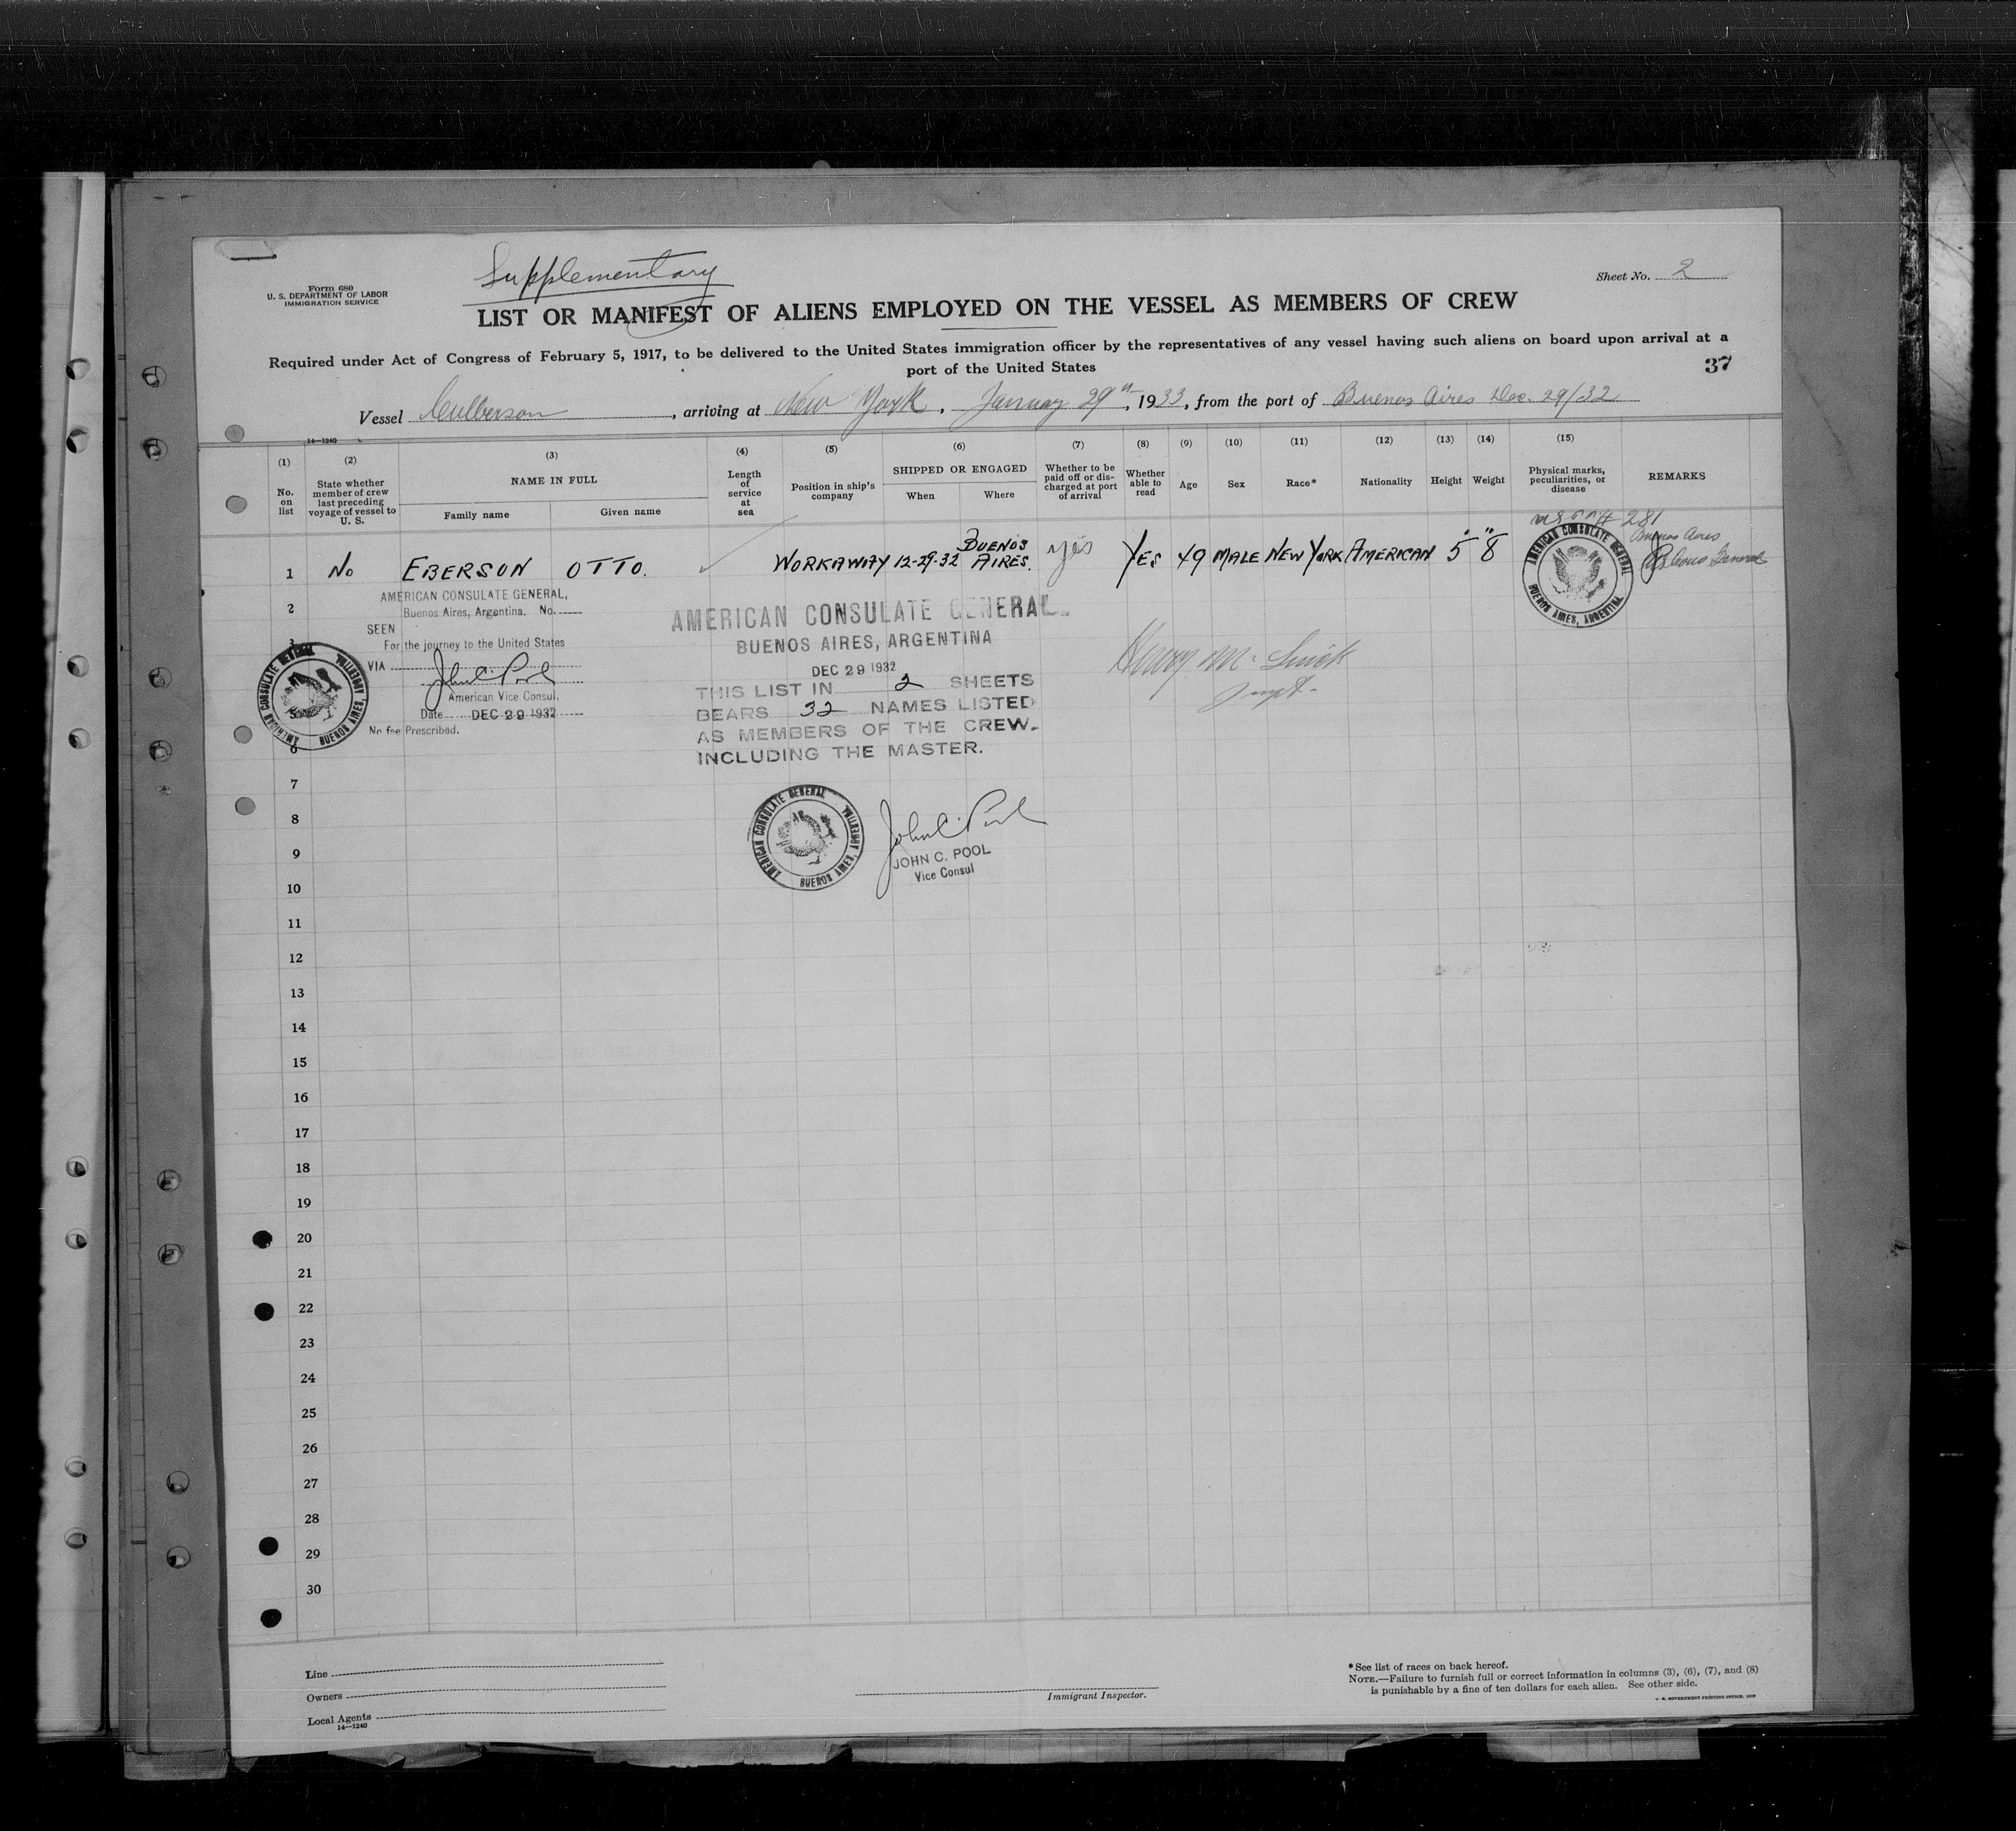 Supplementary
Form 680
U. S. DEPARTMENT OF LABOR
IMMIGRATION SERVICE
Sheet No. 2
LIST OR MANIFEST OF ALIENS EMPLOYED ON THE VESSEL AS MEMBERS OF CREW
Required under Act of Congress of February 5, 1917, to be delivered to the United States immigration officer by the representatives of any vessel having such aliens on board upon arrival at a
port of the United States
37
Vessel Culberson, arriving at New York, January 29th, 1933, from the port of Buenos Aires Dec. 29/32
14—1240
(1) (2) (3) (4) (5) (6) (7) (8) (9) (10) (11) (12) (13) (14) (15)
No. on list
State whether member of crew last preceding voyage of vessel to U. S.
NAME IN FULL
Family name
Given name
Length of service at sea
Position in ship's company
SHIPPED OR ENGAGED
When
Where
Whether to be paid off or discharged at port of arrival
Whether able to read
Age
Sex
Race*
Nationality
Height
Weight
Physical marks, peculiarities, or disease
REMARKS
281
1 No EBERSON OTTO. WORKAWAY 12-29-32 BUENOS AIRES. yes YES 49 MALE NEW YORK AMERICAN 5' 8"
Buenos Aires
General
AMERICAN CONSULATE GENERAL
BUENOS AIRES, ARGENTINA.
2
AMERICAN CONSULATE GENERAL,
Buenos Aires, Argentina. No.
SEEN
For the journey to the United States
VIA
John C. Pool
American Vice Consul.
Date DEC 29 1932
No fee Prescribed.
AMERICAN CONSULATE GENERAL
BUENOS AIRES, ARGENTINA
AMERICAN CONSULATE GENERAL
BUENOS AIRES, ARGENTINA
DEC 29 1932
THIS LIST IN 2 SHEETS
BEARS 32 NAMES LISTED
AS MEMBERS OF THE CREW
INCLUDING THE MASTER.
Henry
3
5
6
7
8
AMERICAN CONSULATE GENERAL
BUENOS AIRES, ARGENTINA
John C. Pool
JOHN C. POOL
Vice Consul
9
10
11
12
13
14
15
16
17
18
19
20
21
22
23
24
25
26
27
28
29
30
Line
Owners
Local Agents
14—1240
Immigrant Inspector.
*See list of races on back hereof.
NOTE.—Failure to furnish full or correct information in columns (3), (6), (7), and (8)
is punishable by a fine of ten dollars for each alien. See other side.
U. S. GOVERNMENT PRINTING OFFICE